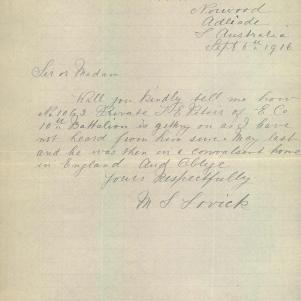 Norwood
Adliade
S Australia
Sept 6th 1916
Sir or Madam
Will you kindly tell me how
Private
10th Battalion is getting on as I have
not heard from him since May last
and he was then in a convalesent home
in England And Oblige
Yours Respectfully
M S Lovick